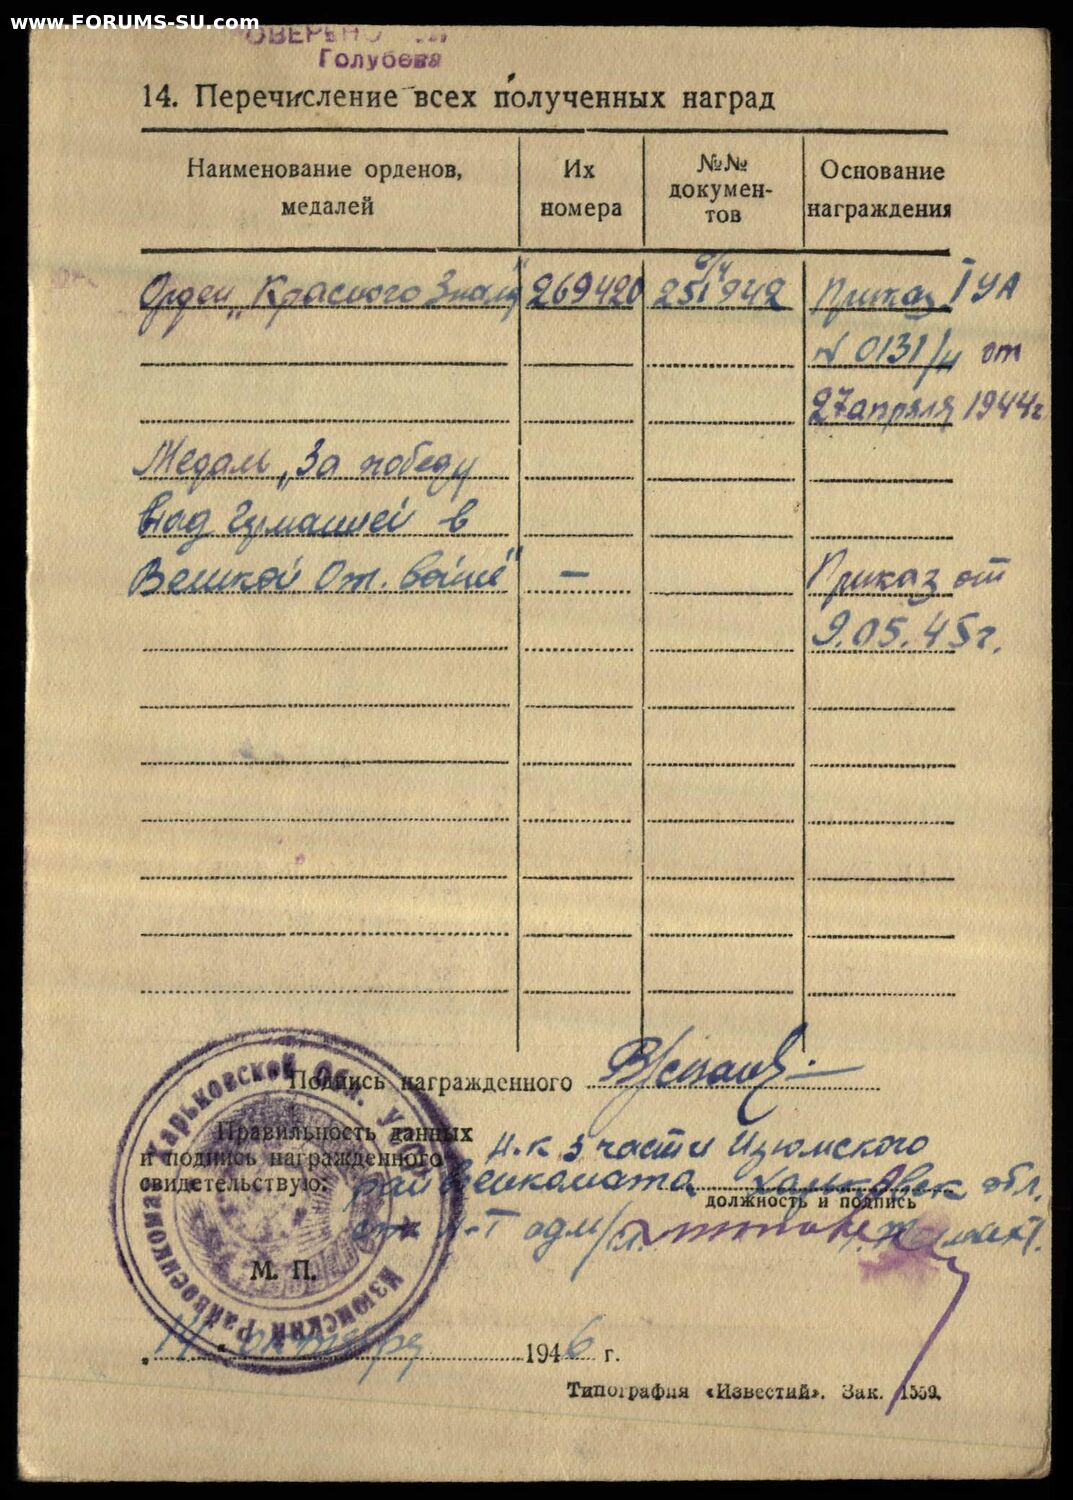 www.FORUMS-SU.com
Голубева
14. Перечисление всех полученных наград
Наименование орденов, медалей
Их номера
№№ документов
Основание награждения
Орден „Красного Знамя" 269420 б/н 251942 Приказ I УА
N 0131/н от
27 апреля 1944г.
Медаль „За победу
над Германией в
Великой От. войне" – Приказ от
9.05.45г.
Подпись награжденного
Правильность данных
и подпись награжденного
свидетельствую:
Н-к 3 части Изюмского
райвоенкомата Харьковск обл.
должность и подпись
М. П.
Харьковской Обл. Изюмский Райвоенкомат
„14" октября 1946 г.
Типография «Известий». Зак. 1559.